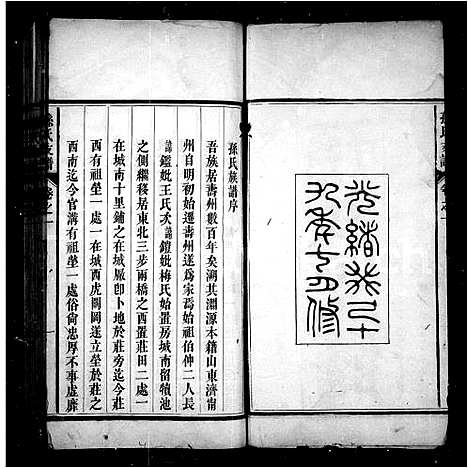 光緒
年
修
孫氏族譜序
吾族居壽州數百年矣溯其淵源本籍山東濟甯
州自明初始遷壽州遂為家焉始祖伯仲二人長
諱鑑妣王氏次諱鎧妣梅氏始置房城南留犢池
之側繼移居東北三步兩橋之西置莊田二處一
在城南十里鋪之在城廠卽卜地於莊旁迄今莊
西有祖塋一處一在城西虎閘岡遂立塋於莊之
西南迄今官溝有祖塋一處俗尚忠厚不事虛靡
孫氏支譜
卷之一